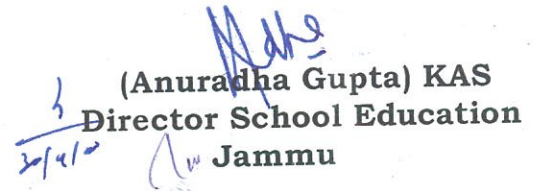 (Anuradha Gupta) KAS
Director School Education
Jammu